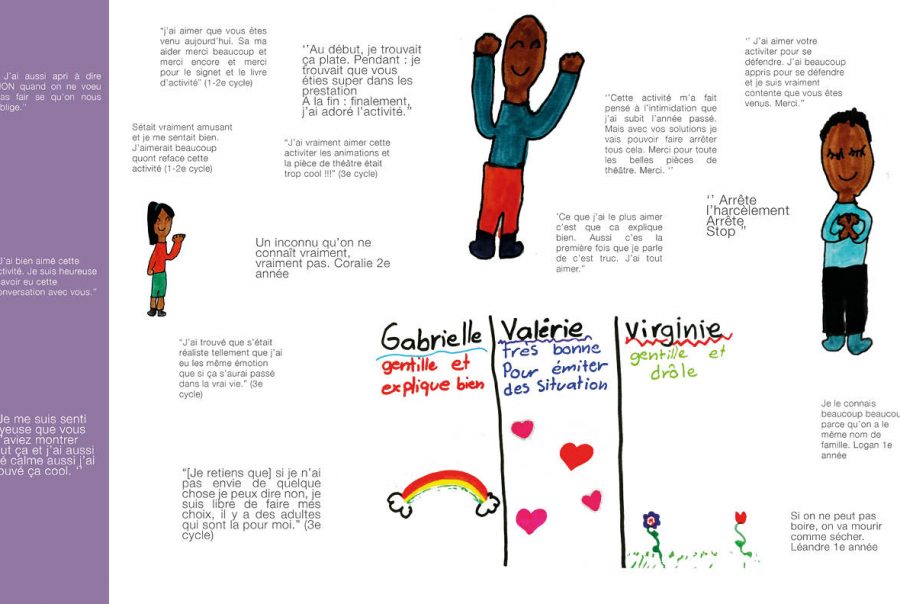 J'ai aussi apri à dire
NON quand on ne voeu
pas fair se qu'on nous
oblige."
J'ai bien aimé cette
activité. Je suis heureuse
avoir eu cette
conversation avec vous."
Je me suis senti
que vous
aviez montrer
ça et j'ai aussi
calme aussi j'ai
ça cool. ''
"j'ai aimer que vous êtes
venu aujourd'hui. Sa ma
aider merci beaucoup et
merci encore et merci
pour le signet et le livre
d'activité" (1-2e cycle)
Sétait vraiment amusant
et je me sentait bien.
J'aimerait beaucoup
quont reface cette
activité (1-2e cycle)
''Au début, je trouvait
ça plate. Pendant : je
trouvait que vous
éties super dans les
prestation
A la fin : finalement,
j'ai adoré l'activité."
"J'ai vraiment aimer cette
activiter les animations et
la pièce de théâtre était
trop cool !!!" (3e cycle)
Un inconnu qu'on ne
connaît vraiment,
vraiment pas. Coralie 2e
année
"J'ai trouvé que s'était
réaliste tellement que j'ai
eu les même émotion
que si ça s'aurai passé
dans la vrai vie." (3e
cycle)
"[Je retiens que] si je n'ai
pas envie de quelque
chose je peux dire non, je
suis libre de faire mes
choix, il y a des adultes
qui sont là pour moi." (3e
cycle)
''Cette activité m'a fait
pensé à l'intimidation que
j'ai subit l'année passé.
Mais avec vos solutions je
vais pouvoir faire arrêter
tous cela. Merci pour toute
les belles pièces de
théâtre. Merci. ''
'Ce que j'ai le plus aimer
c'est que ca explique
bien. Aussi c'es la
première fois que je parle
de c'est truc. J'ai tout
aimer."
'' J'ai aimer votre
activiter pour se
défendre. J'ai beaucoup
appris pour se défendre
et je suis vraiment
contente que vous êtes
venus. Merci."
'' Arrête
l'harcèlement
Arrête
Stop "
Gabrielle
gentille et
explique bien
Valérie
très bonne
Pour émiter
des Situation
Virginie
gentille et
drôle
Je le connais
beaucoup beaucou
parce qu'on a le
même nom de
famille. Logan 1e
année
Si on ne peut pas
boire, on va mourir
comme sécher.
Léandre 1e année